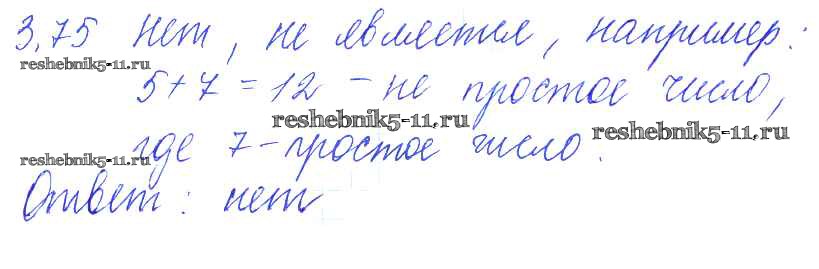 3.75 Нет, не является, например:
reshebnik5-11.ru
5+7=12 - не простое число,
reshebnik5-11.ru
reshebnik5-11.ru
где 7-простое число.
reshebnik5-11.ru
Ответ: нет